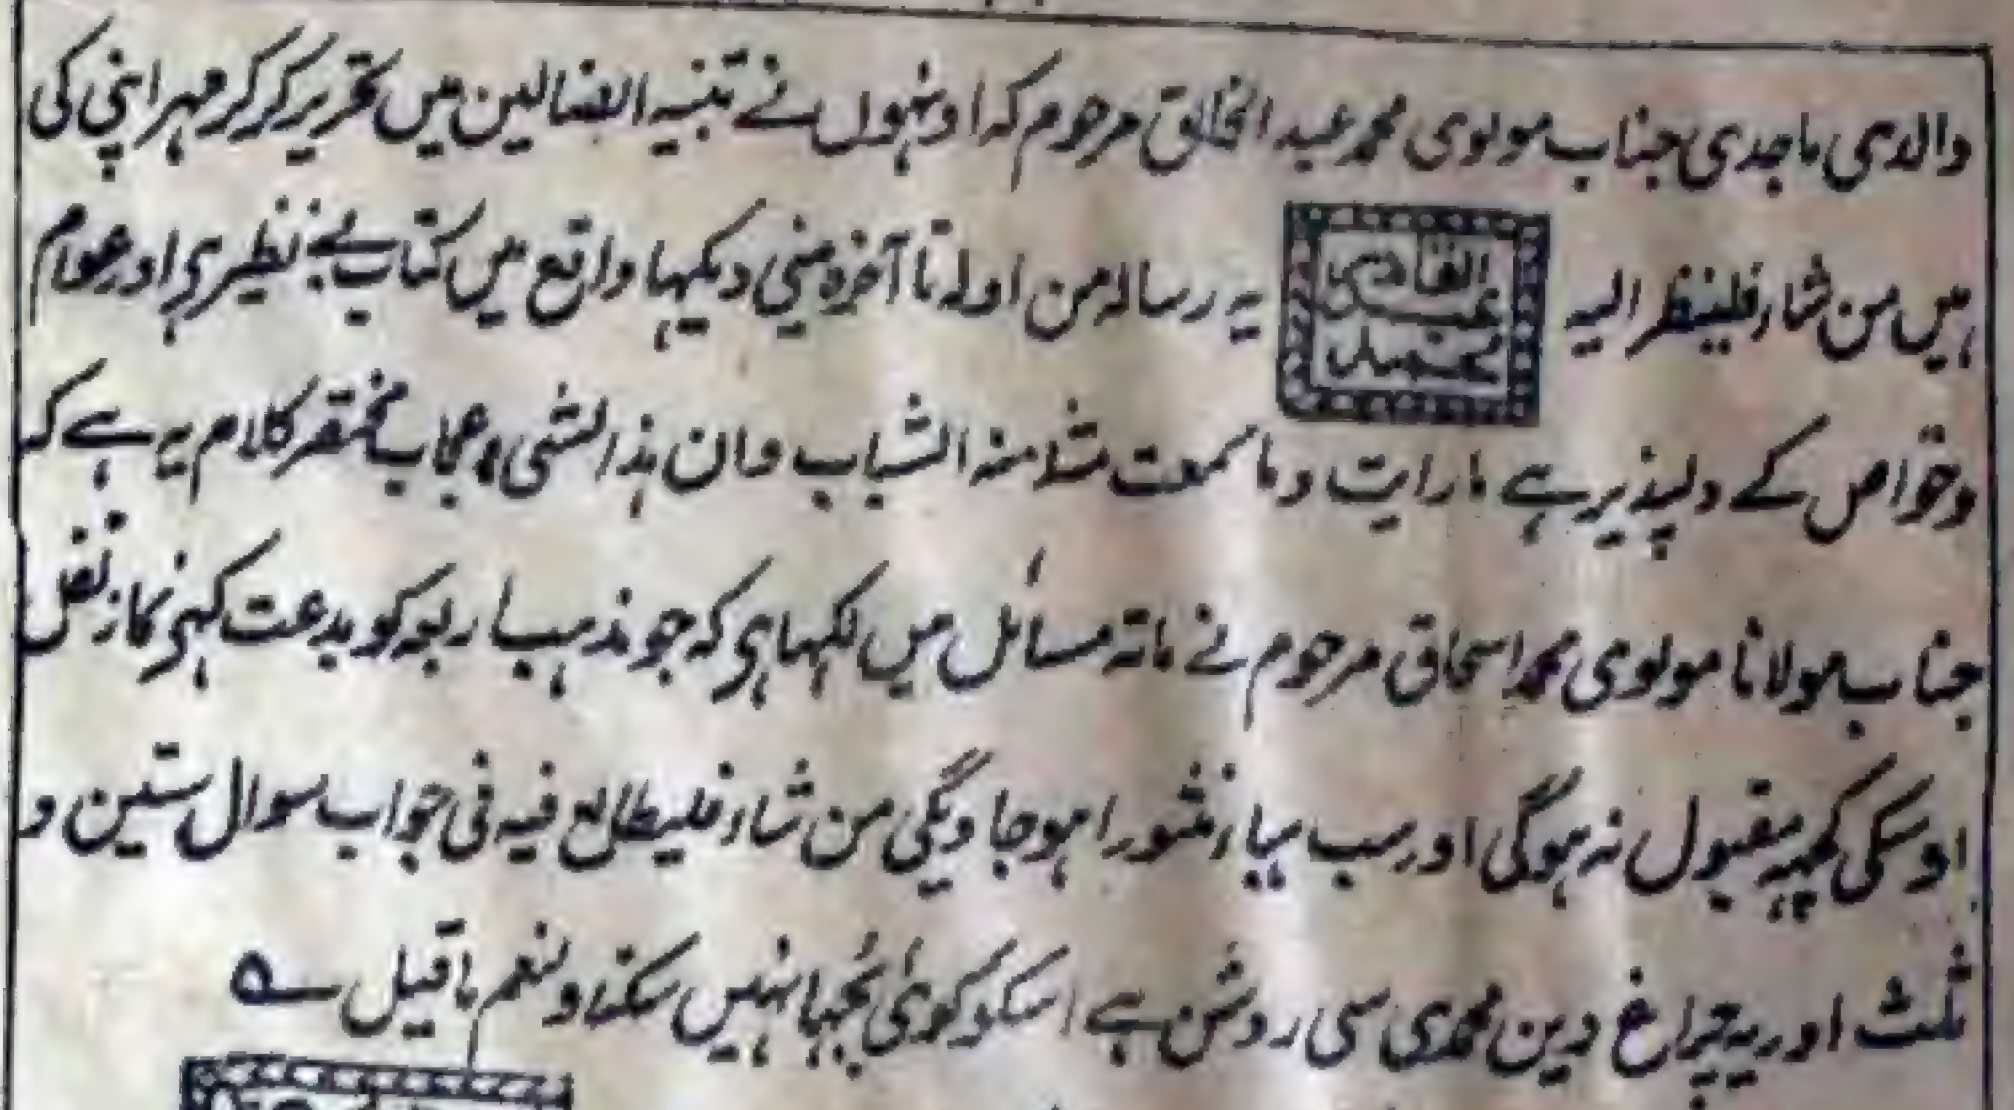 والدی ماجدی جناب مولوی محمد عبد الخالق مرحوم کہ اونہوں نے تنبیہ الضالین میں تحریر کرکر مہر اپنی کی
ہیں من شاء فلینظر الیہ
القادر
عبد
محمد
یہ رسالہ من اولہ تا آخرہ مینی دیکہا واقع میں کتاب بے نظیر ہی اور عوام
وخواص کے دلپذیر ہے ما رایت وما سمعت مثلا منہ الشباب وان ہذا لشیء عجاب مختصر کلام یہ ہے کہ
جناب مولانا مولوی محمد اسحاق مرحوم نے مائۃ مسائل میں لکہا ہی کہ جو مذہب اربعہ کو بدعت کہی نماز نفل
اوسکی کچہہ مقبول نہ ہوگی اور سب ہباء منثورا ہو جاویگی من شاء فلیطالع فیہ فی جواب سوال ستین و
ثلث اور یہ چراغ دین محمدی سی روشن ہے اسکو کوئی بجہا نہیں سکتا ولنعم ما قیل ؎